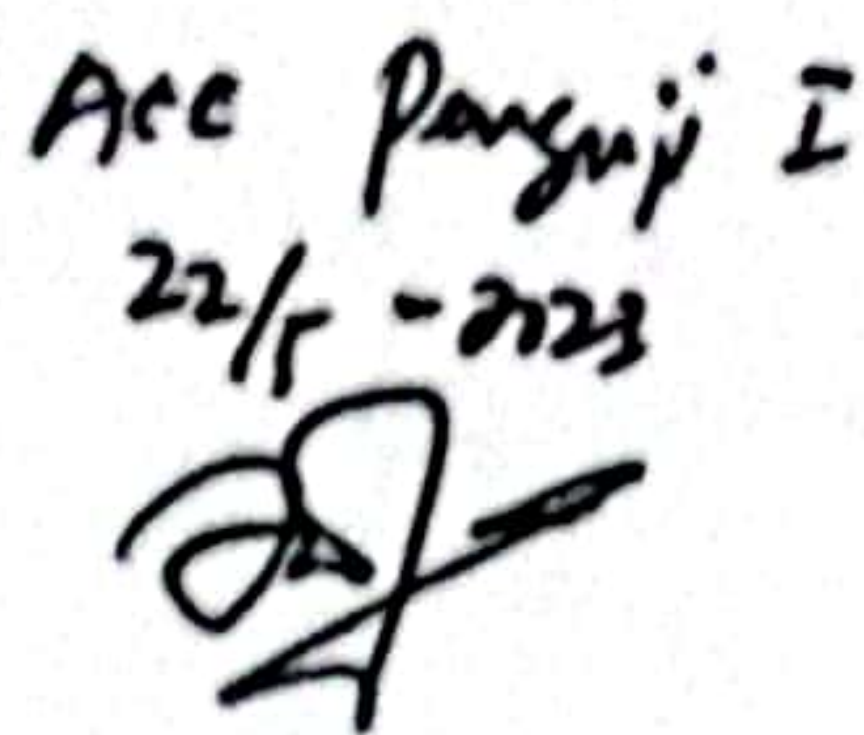 Acc Penguji I
22/5 - 2023